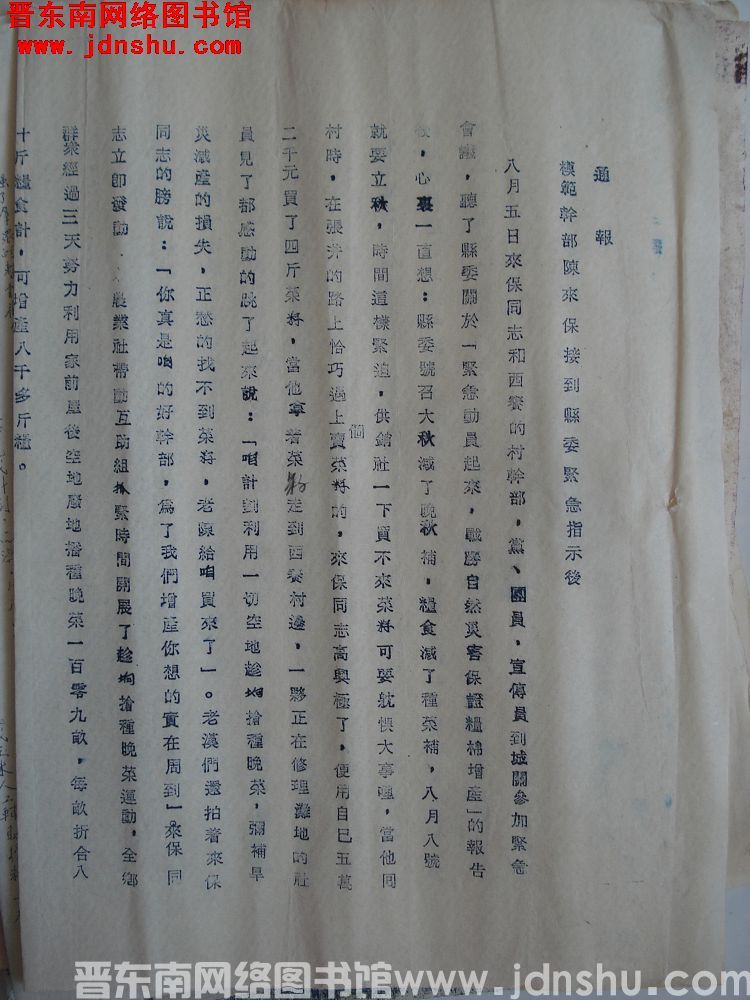 晋东南网络图书馆
www.jdnshu.com
通報
模範幹部陳來保接到縣委緊急指示後
八月五日來保同志和西賽的村幹部，黨、團員，宣傳員到城關參加緊急
會議，聽了縣委關於「緊急動員起來，戰勝自然災害保證糧棉增產」的報告
後，心裏一直想：縣委號召大秋減了晚秋補，糧食減了種菜補，八月八號
就要立秋，時間這樣緊迫，供銷社一下買不來菜籽可要躭悞大事哩，當他囘
村時，在張井的路上恰巧遇上個賣菜籽的，來保同志高興極了，便用自己五萬
二千元買了四斤菜籽，當他拿着菜籽走到西賽村邊，一夥正在修理灘地的社
員見了都感動的跳了起來說：「咱計劃利用一切空地趁墒搶種晚菜，彌補旱
災減產的損失，正愁的找不到菜籽，老陳給咱買來了」。老漢們還拍着來保
同志的膀說：「你真是咱的好幹部，為了我們增產你想的實在周到」。來保同
志立即發動農業社帶動互助組抓緊時間開展了趁墒搶種晚菜運動，全鄉
群衆經過三天努力利用家前屋後空地廢地播種晚菜一百零九畝，每畝折合八
十斤糧食計，可增產八千多斤糧。
晋东南网络图书馆www.jdnshu.com